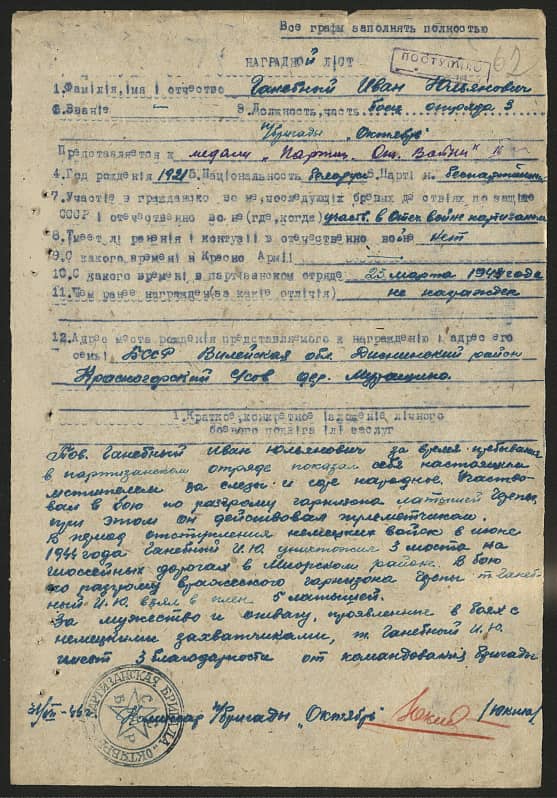 Все графы заполнять полностью
ПОСТУПИЛО
62
НАГРАДНОЙ ЛІСТ
1.Фамілія,імя і отчество Ганебный Иван Юльянович
2.Званіе — 3.Должность,часть боец отряда 3
п/бригады "Октябрь"
Представляется к медали "Партиз. От. Войны"
4.Год рождения 1921 5.Національность белорус 6.Парті н. беспартійный
7.Участіе в гражданско во не,последующіх боевых де ствіях по защіте
СССР і отечественно во не(где,когда) участв. в Отеч войне партизаном
8.Імеет лі раненія і контузіі в отечественно во не нет
9.С какого времені в Красно Арміі —
10.С какого времені в партізанском отряде 25 марта 1944 года
11.Чем ранее награжден(за какіе отлічія) не награжден
12.Адрес места рожденія представляемого к награжденію і адрес его
семьі БССР Вилейская обл. Дисненский район
Красногорский с/сов дер.
1.Краткое,конкретное ізложеніе лічного
боевого подвіга ілі заслуг
Тов. Ганебный Иван Юльянович за время пребывания
в партизанском отряде показал себя настоящим
мстителем за слезы и горе народное. Участво-
вал в бою по разгрому гарнизона латышей
при этом он действовал пулеметчиком.
В период отступления немецких войск в июне
1944 года Ганебный И.Ю. уничтожил 3 моста на
шоссейных дорогах в Миорском районе. В бою
по разгрому вражеского гарнизона т. Ганеб-
ный И.Ю. взял в плен 5 латышей.
За мужество и отвагу, проявленные в боях с
немецкими захватчиками, т. Ганебный И.Ю.
имеет 3 благодарности от командования бригады
ПАРТИЗАНСКАЯ БРИГАДА "ОКТЯБРЬ"
БССР
31/VII-46 г. Комиссар п/бригады "Октябрь"